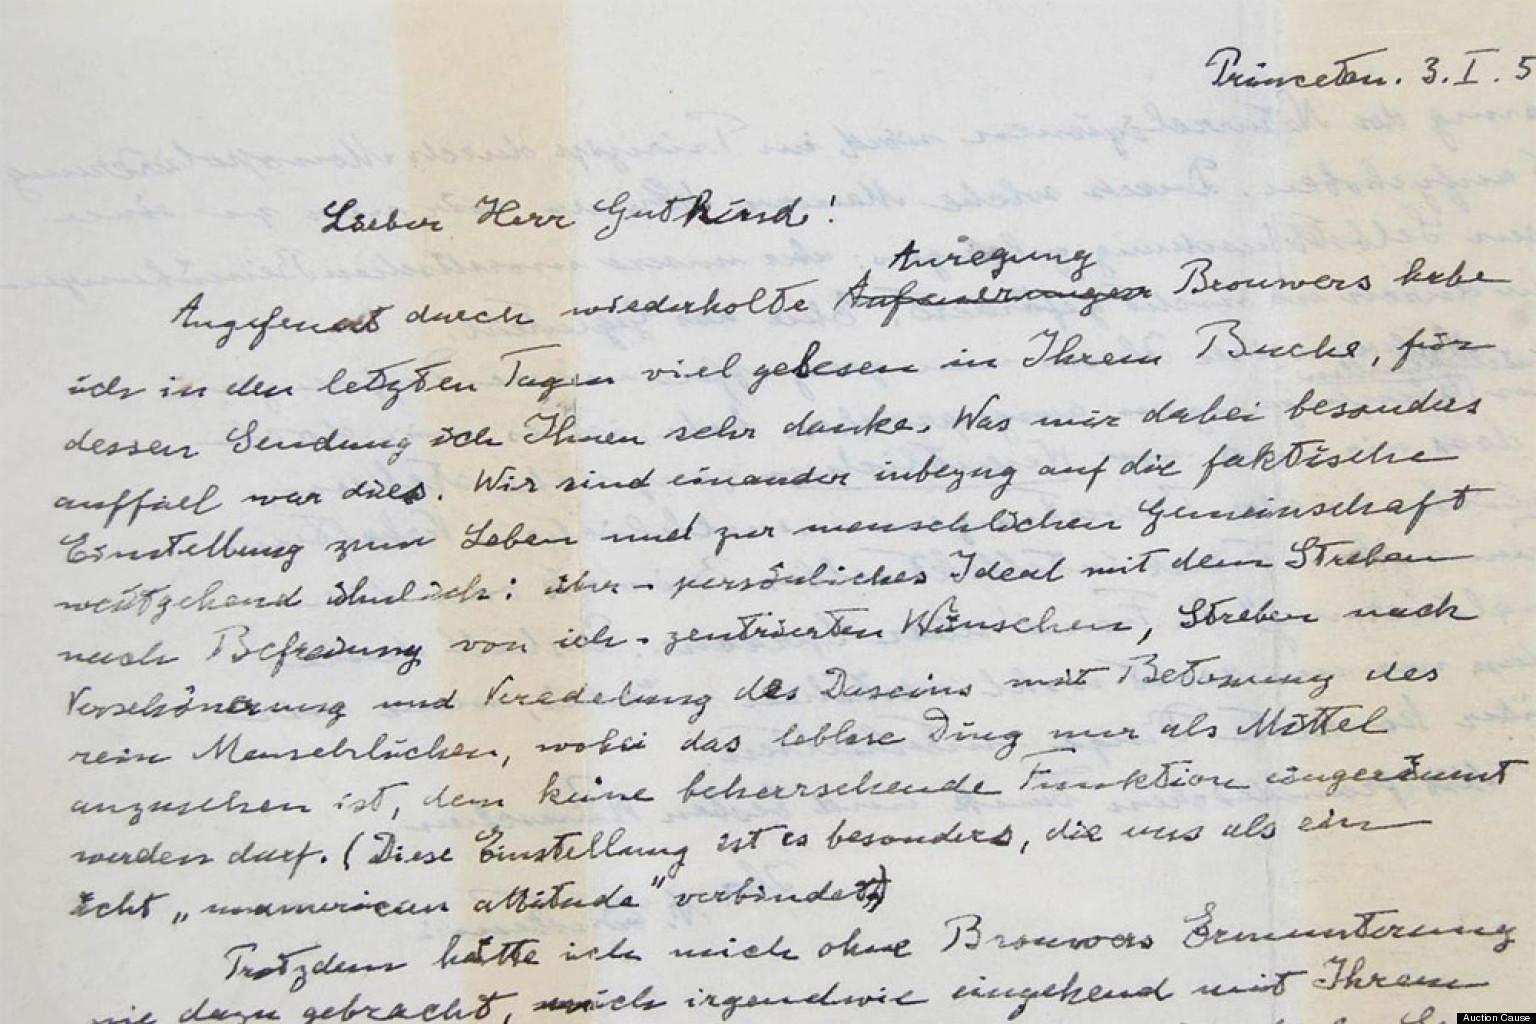 Princeton. 3. I. 5
Lieber Herr Gutkind!
Anregung
Angefeuert durch wiederholte Aufeuerungen Brouwers habe
ich in den letzten Tagen viel gelesen in Ihrem Buche, für
dessen Sendung ich Ihnen sehr danke. Was mir dabei besonders
auffiel war dies. Wir sind einander inbezug auf die faktische
Einstellung zum Leben und zur menschlichen Gemeinschaft
weitgehend ähnlich: über-persönliches Ideal mit dem Streben
nach Befreiung von ich-zentrierten Wünschen, Streben nach
Verschönerung und Veredelung des Daseins mit Betonung des
rein Menschlichen, wobei das leblose Ding nur als Mittel
anzusehen ist, dem keine beherrschende Funktion eingeräumt
werden darf. (Diese Einstellung ist es besonders, die uns als ein
echt „unamerican attitude" verbindet)
Trotzdem hätte ich mich ohne Brouwers Ermunterung
nie dazu gebracht, mich irgendwie eingehend mit Ihrem
Auction Cause